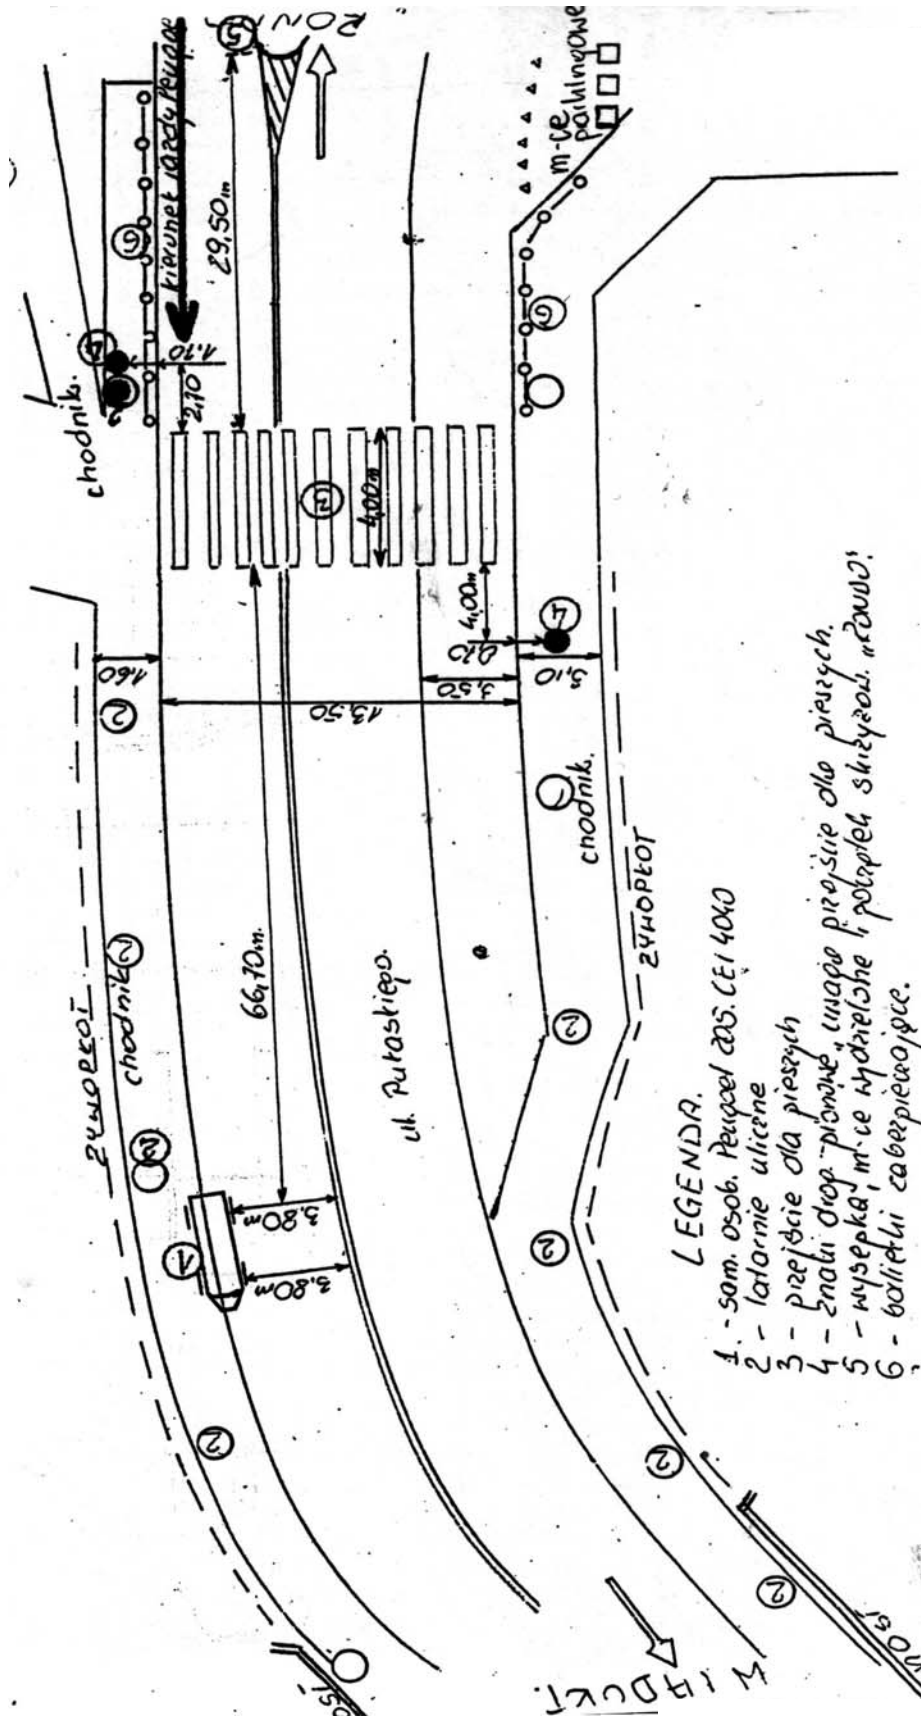 ROND
5
kierunek jazdy Peugeot
29,50m
6
m-ce
parkingowe
4
1,10
2,10
chodnik.
6
3
4,00m
4,00m
0,70
4
1,60
2
13,50
3,50
3,10
chodnik.
ŻYWOPŁOT
ŻYWOPŁOT
chodnik
2
66,70m.
ul. Pułaskiego.
2
2
1
3,80m
3,80m
2
2
2
2
WIADUKT.
LEGENDA.
1. - sam. osob. Peugeot 205. CEI 4040
2 - latarnie uliczne
3 - przejście dla pieszych
4 - znaki drog. pionowe „uwaga przejście dla pieszych.
5 - wysepka, m-ce wydzielone i początek skrzyżow. „RONDO".
6 - barierki zabezpieczające.